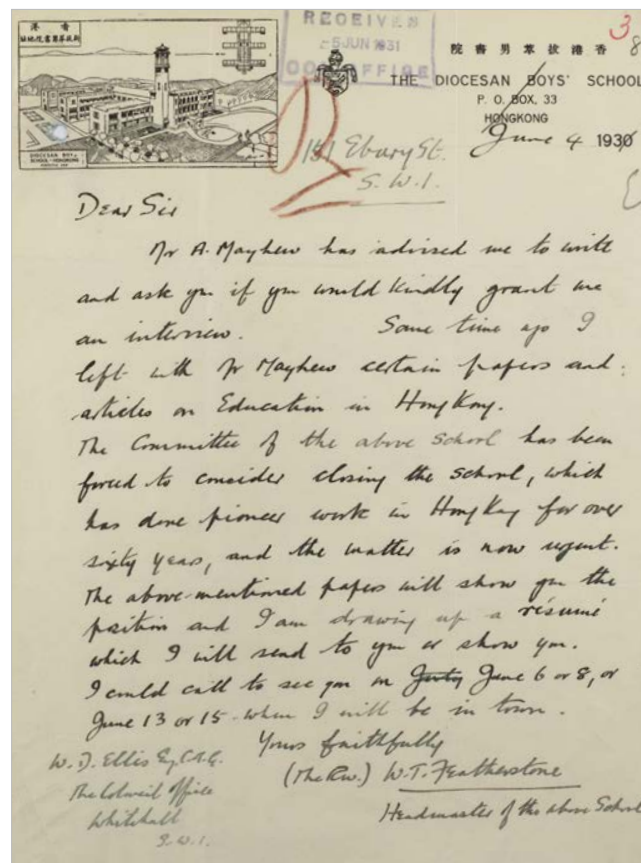 港香
站地院書男萃拔新
DIOCESAN BOYS'
SCHOOL-HONGKONG
RECEIVED
5 JUN 1931
COL. OFFICE
3
8
院書男萃拔港香
THE DIOCESAN BOYS' SCHOOL
P. O. BOX, 33
HONGKONG
June 4 1930
151 Ebury St.
S. W. 1.
Dear Sir
Mr A. Mayhew has advised me to write
and ask you if you would kindly grant me
an interview. Some time ago I
left with Mr Mayhew certain papers and
articles on Education in Hong Kong.
The Committee of the above school has been
forced to consider closing the school, which
has done pioneer work in Hong Kong for over
sixty years, and the matter is now urgent.
The above-mentioned papers will show you the
position and I am drawing up a résumé
which I will send to you or show you.
I could call to see you on June 6 or 8, or
June 13 or 15 - when I will be in town.
Yours faithfully
(The Rev.) W. T. Featherstone
Headmaster of the above School
W. D. Ellis Esq. C.M.G.
The Colonial Office
Whitehall
S. W. 1.